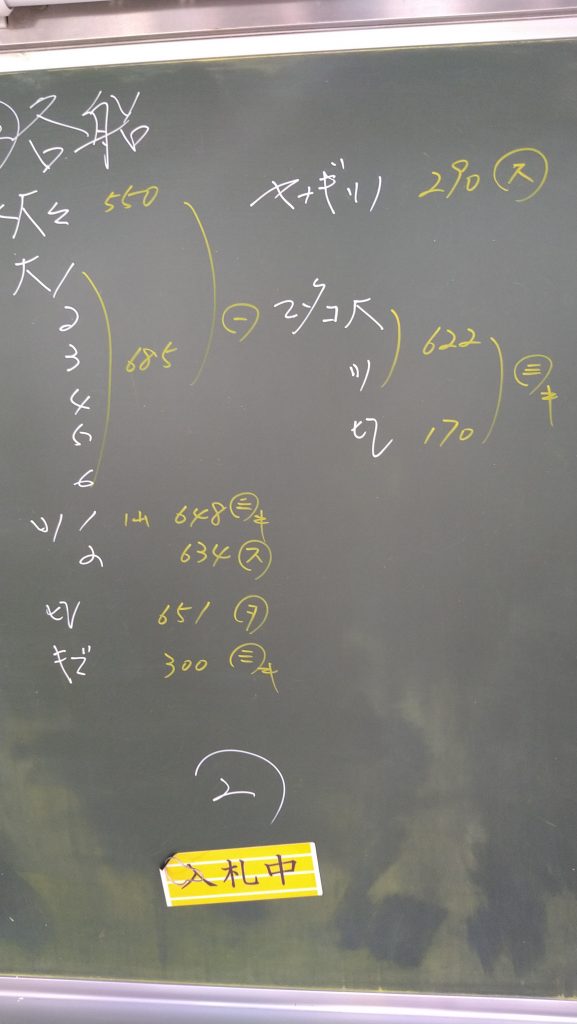 各船
大々 550
大1
2
3 685
4
5
6
㊀
ツ1 648 ㊂キ
2 634 ㋜
切 651 ㋾
キズ 300 ㊂キ
キナギリ 290 ㋜
マダコ大
ツ 622
切 170
㊂キ
2
入札中